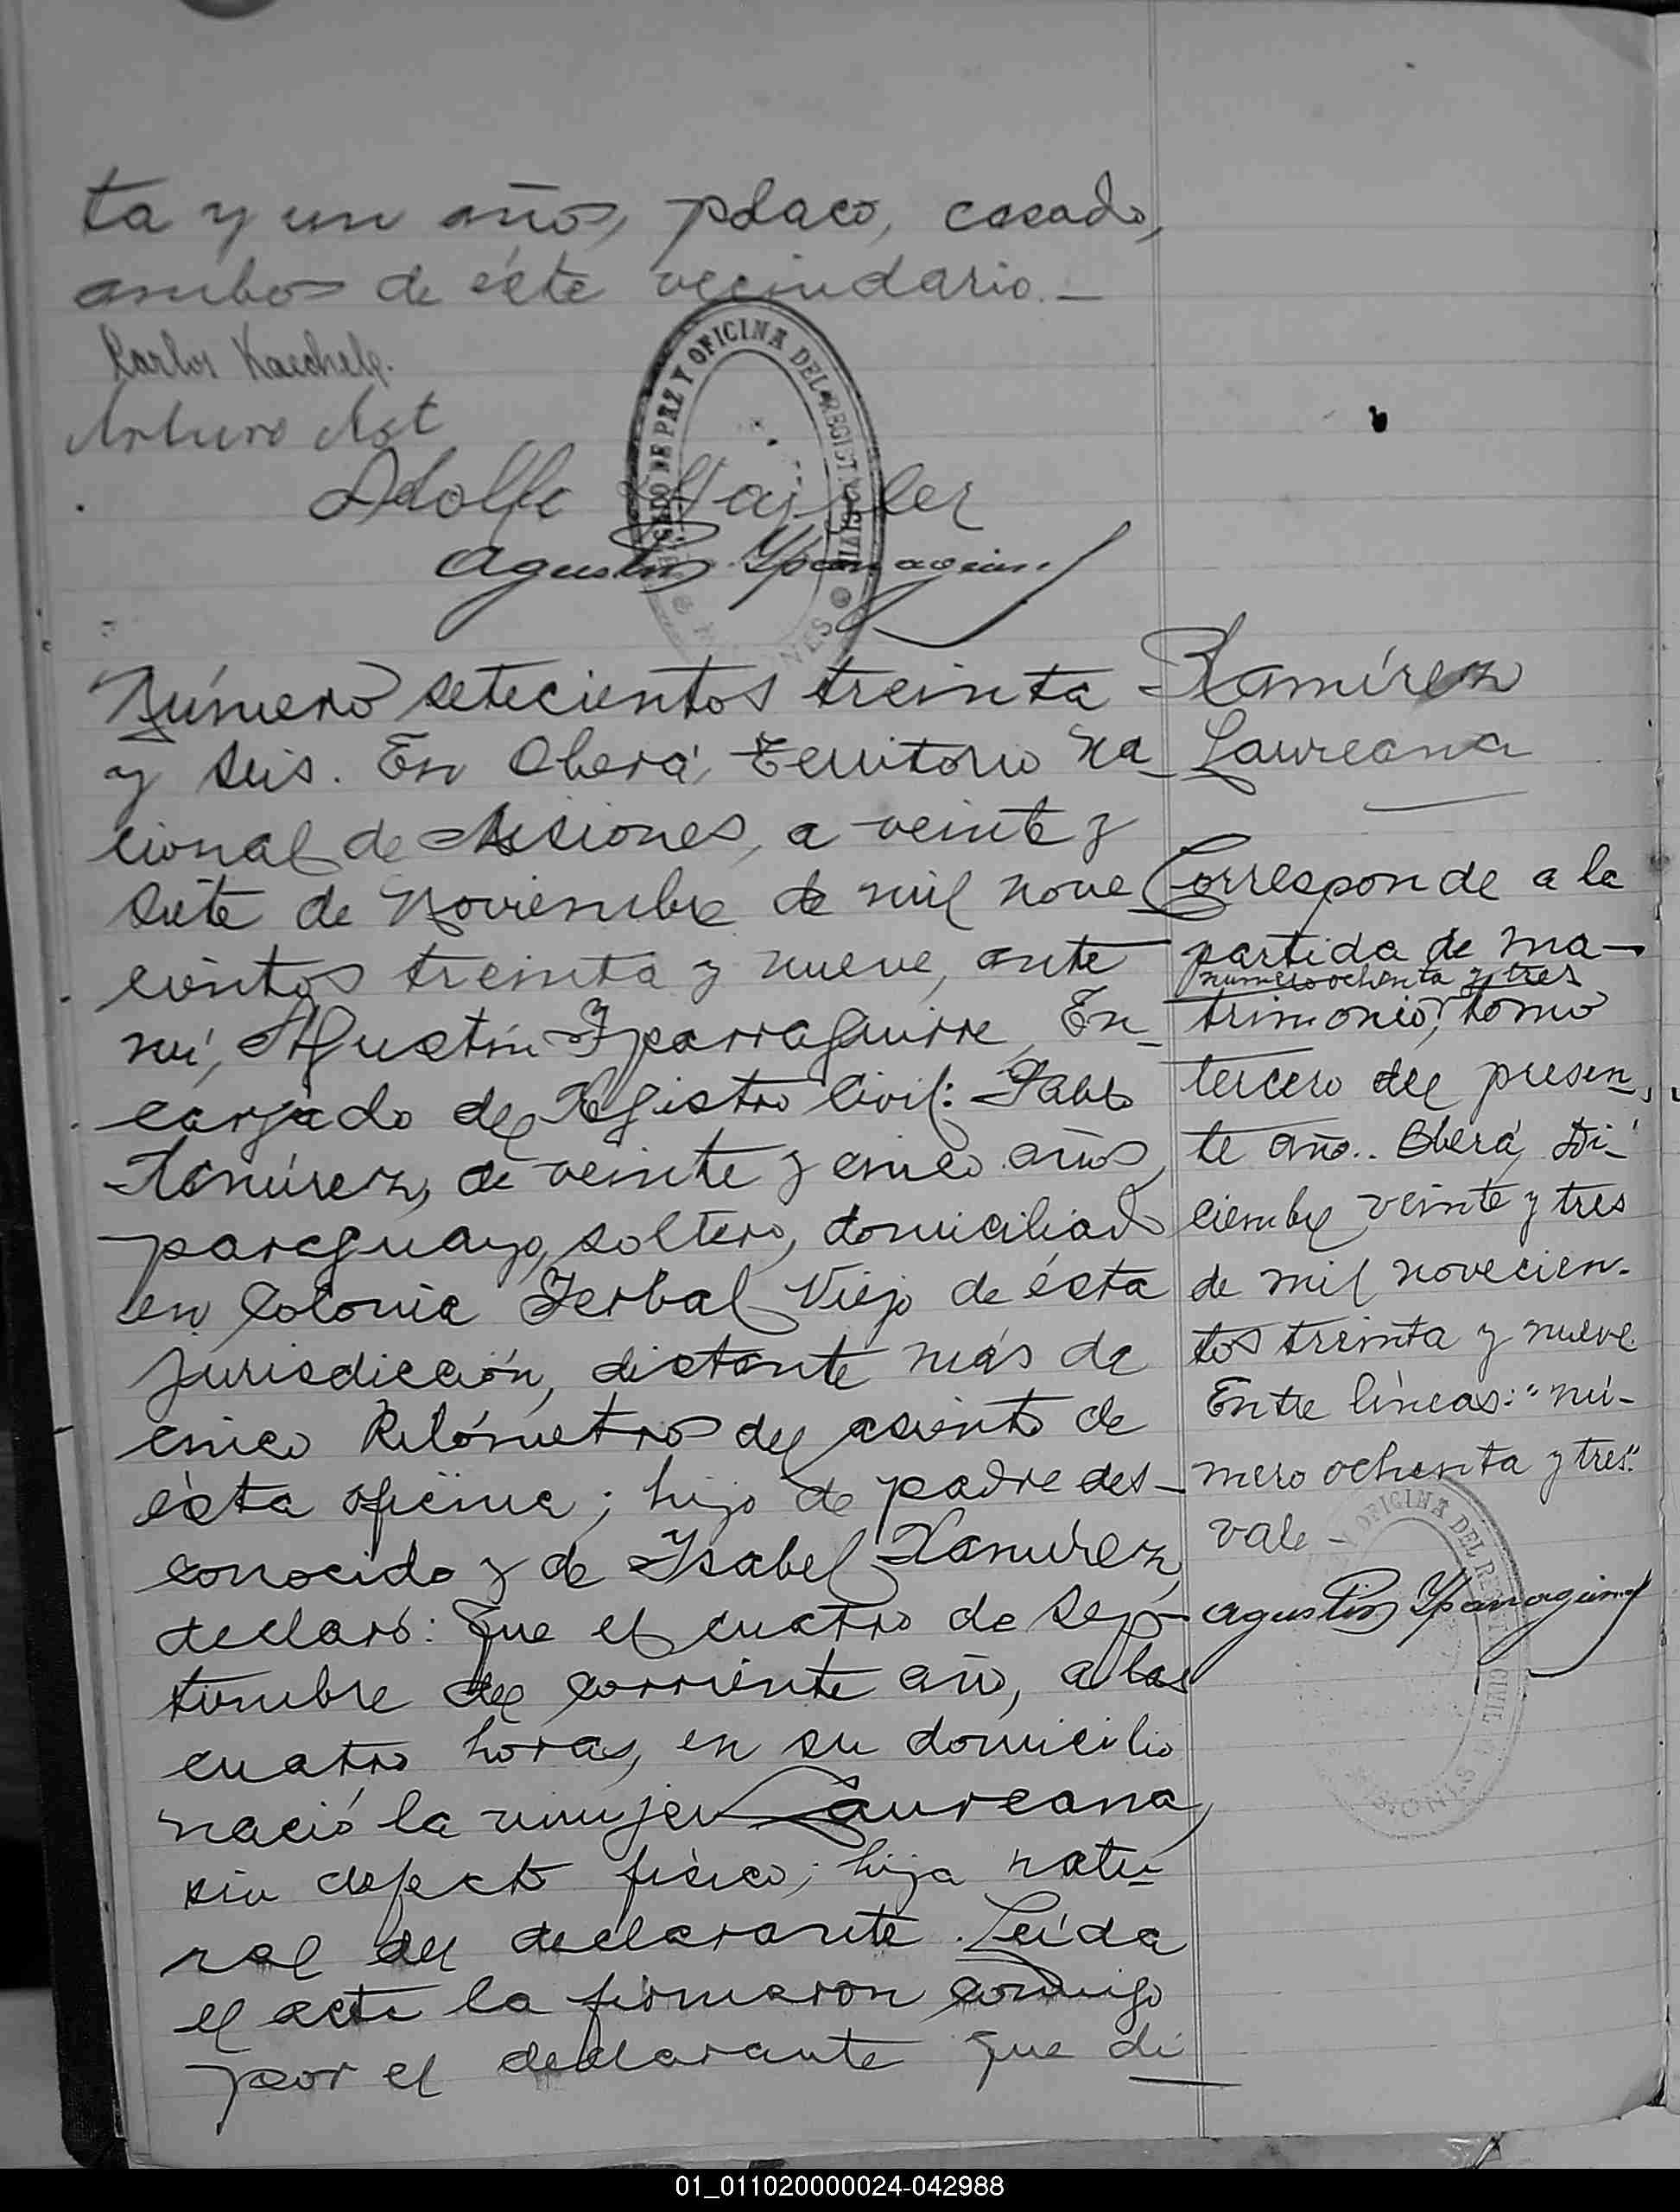 ta y un años, polaco, casado,
ambos de éste vecindario.—
Carlos Kaechele.
Arturo Ast
Adolfo
Agustin Yparraguirre
JUZGADO DE PAZ Y OFICINA DEL REGISTRO CIVIL
MISIONES
Número setecientos treinta
y seis. En Oberá, Territorio Na-
cional de Misiones, a veinte y
siete de Noviembre de mil nove
cientos treinta y nueve, ante
mí, Agustín Yparraguirre, En-
cargado del Registro Civil: Pablo
Ramírez, de veinte y cinco años,
paraguayo, soltero, domiciliado
en Colonia Yerbal Viejo de ésta
jurisdicción, distante más de
cinco kilómetros del asiento de
ésta oficina; hijo de padre des-
conocido y de Isabel Ramírez,
declaró: Que el cuatro de Sep-
tiembre del corriente año, a las
cuatro horas, en su domicilio
nació la mujer Laureana,
sin defecto físico; hija natu-
ral del declarante. Leída
el acta la firmaron conmigo
por el declarante que di-
Ramírez
Laureana
Corresponde a la
partida de ma-
numero ochenta y tres
trimonio, tomo
tercero del presen-
te año.. Oberá, Di-
ciembre veinte y tres
de mil novecien-
tos treinta y nueve.
Entre líneas: "nú-
mero ochenta y tres".
vale —
Agustin Yparraguirre
Y OFICINA DEL REGISTRO CIVIL
MISIONES
01_011020000024-042988